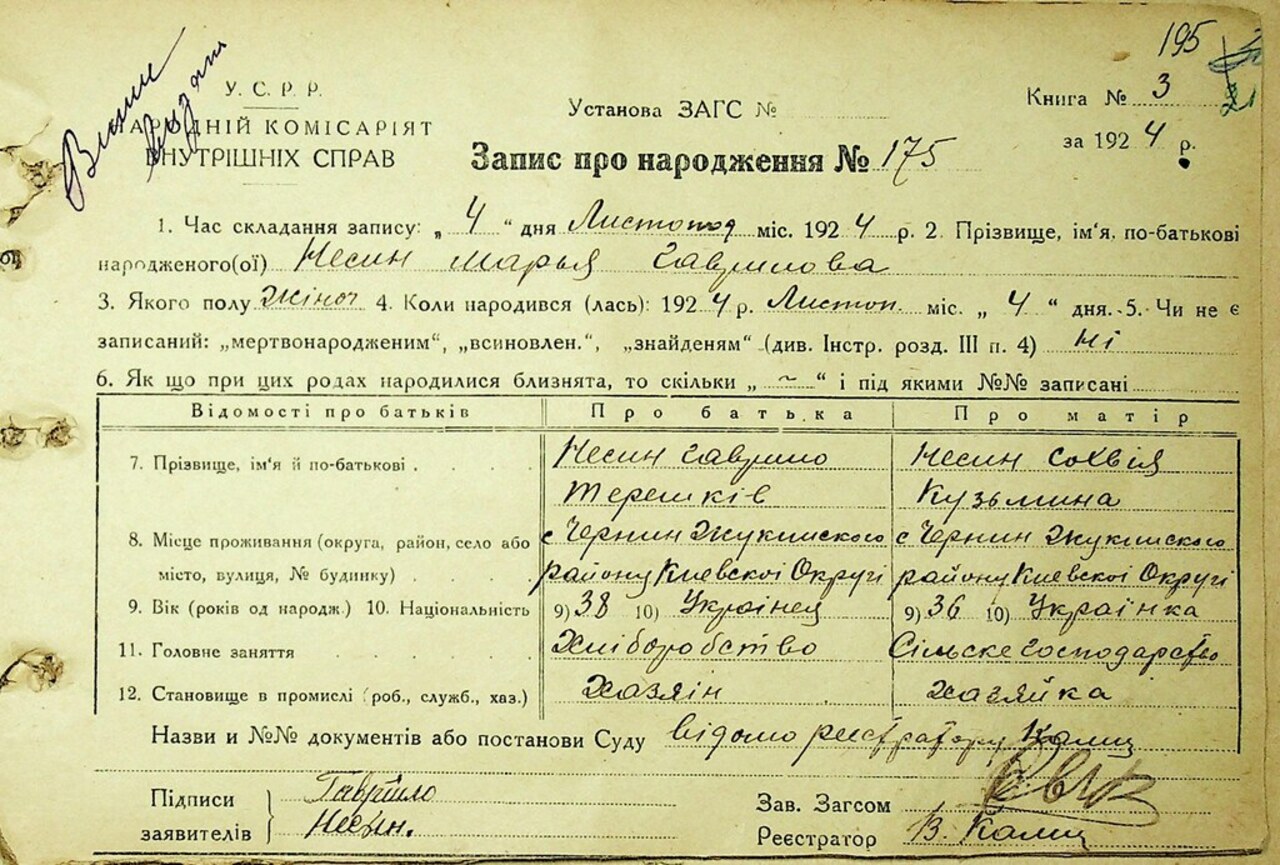 195
У. С. Р. Р.
АРОДНІЙ КОМІСАРІЯТ
ВНУТРІШНІХ СПРАВ
Установа ЗАГС №
Книга № 3
за 1924 р.
Запис про народження № 175
1. Час складання запису: „ 4 “ дня Листопад міс. 1924 р. 2. Прізвище, ім'я, по-батькові
народженого(ої) Несин Марья Гаврилова
3. Якого полу Жіноч 4. Коли народився (лась): 1924 р. Листоп. міс. „ 4 “ дня. 5. Чи не є
записаний: „мертвонародженим“, „всиновлен.“, „знайденям“ (див. Інстр. розд. III п. 4) Ні
6. Як що при цих родах народилися близнята, то скільки „ ~ “ і під якими №№ записані
Відомості про батьків Про батька Про матір
7. Прізвище, ім'я й по-батькові Несин Гаврило Несин Сохвія
Терешків Кузьмина
8. Місце проживання (округа, район, село або с Чернин Жукинского с Чернин Жукинского
місто, вулиця, № будинку) району Киевскоі Округі району Киевскоі Округі
9. Вік (років од народж.) 10. Національність 9) 38 10) Украінец 9) 36 10) Українка
11. Головне заняття Хліборобство Сільске Господарство
12. Становище в промислі (роб., служб., хаз.) Хазяін Хазяйка
Назви и №№ документів або постанови Суду відомо реєстратору
Підписи Гаврило
заявителів Несин.
Зав. Загсом
Реєстратор В.